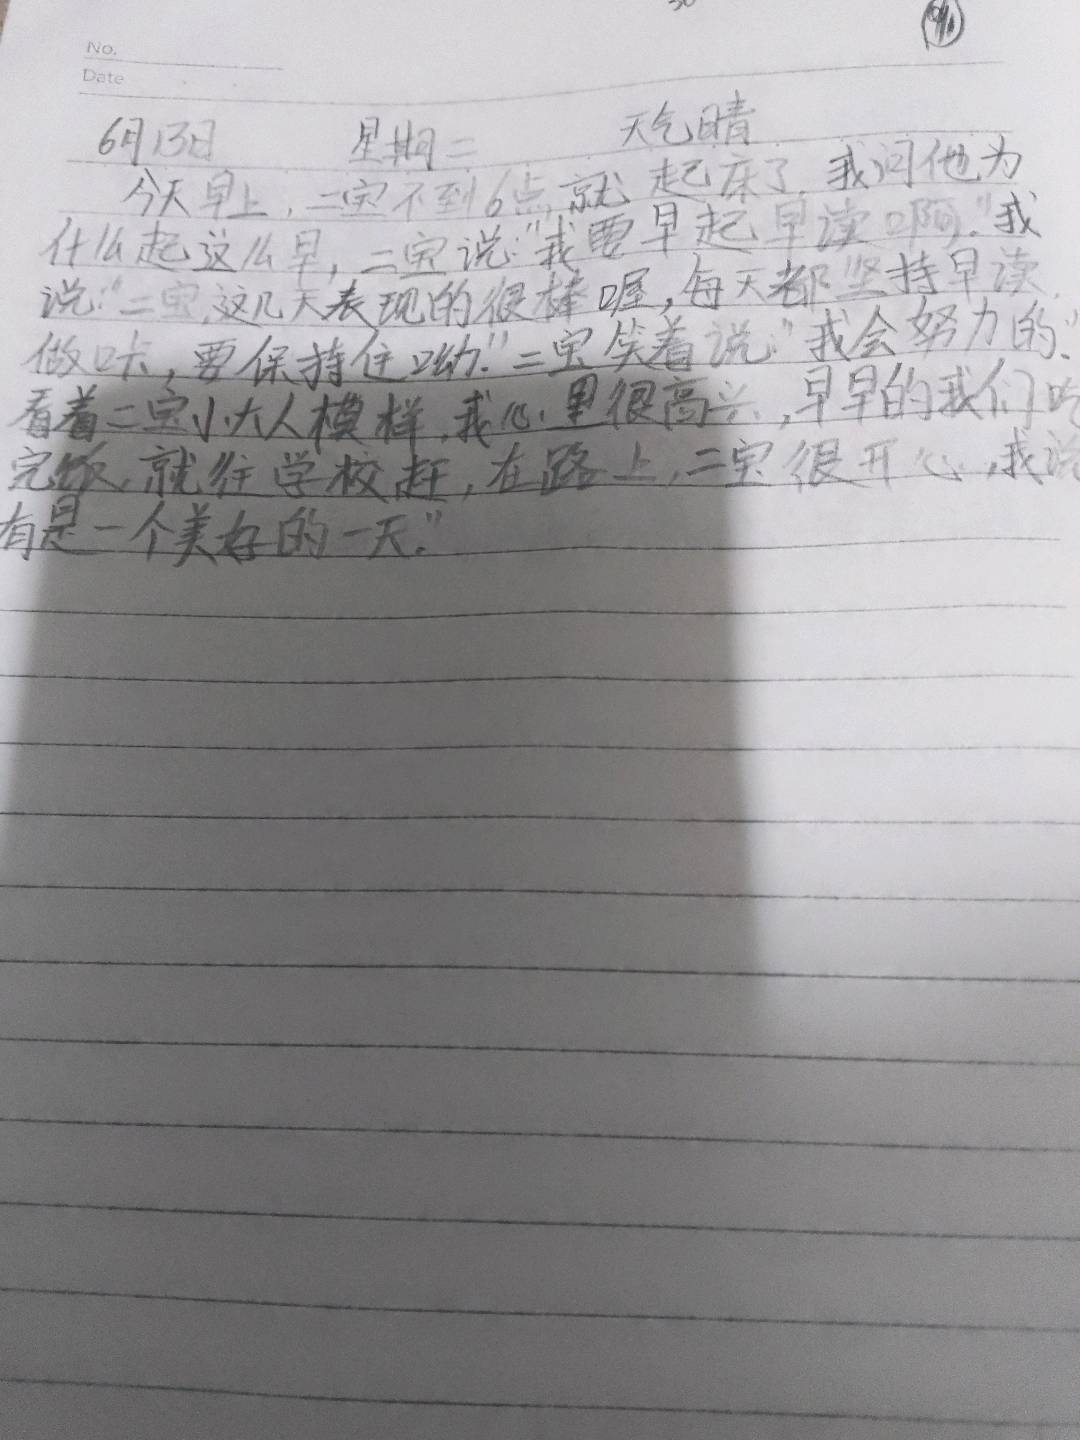 No.
Date
6月13日 星期二 天气晴
今天早上,二宝不到6点,就起床了,我问他为
什么起这么早,二宝说:"我要早起早读啊."我
说:"二宝,这几天表现的很棒喔,每天都坚持早读,
做咔,要保持住呦."二宝笑着说:"我会努力的."
看着二宝小大人模样,我心里很高兴,早早的我们吃
完饭,就往学校赶,在路上,二宝很开心,我说
有是一个美好的一天."